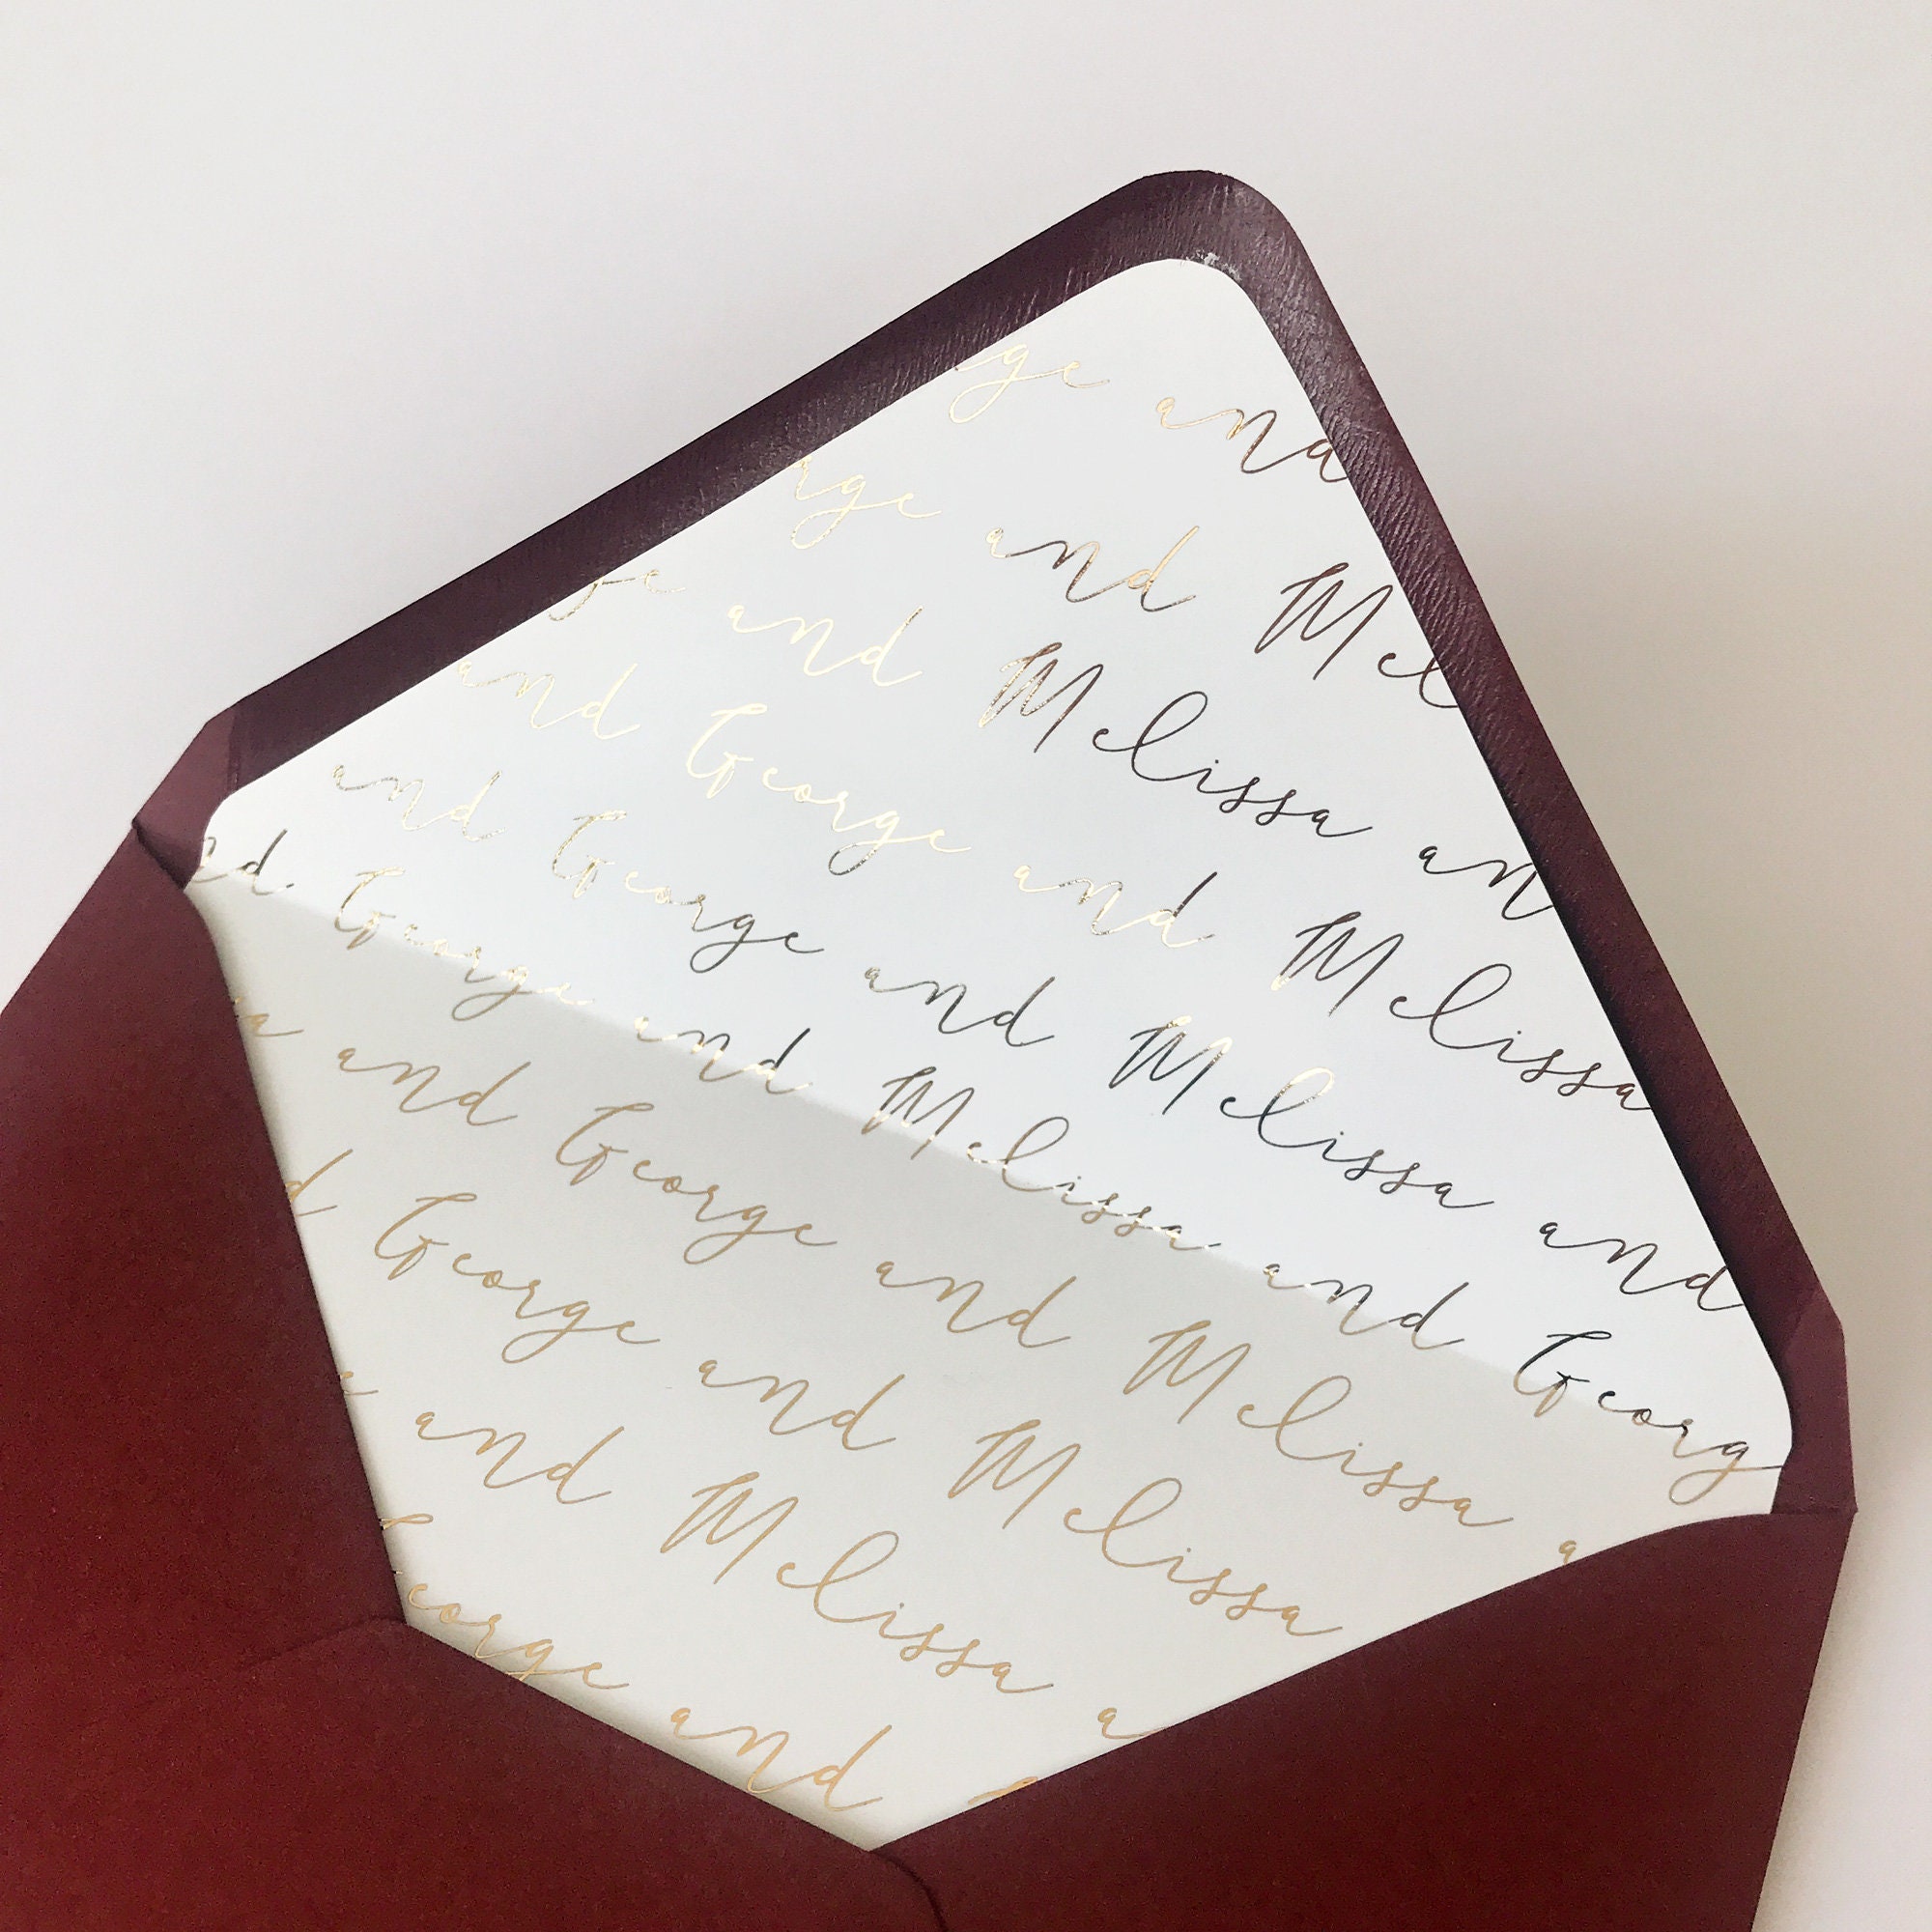 and
and Mel
and Melissa an
and George and Melissa
and George and Melissa and
George and Melissa and Georg
and George and Melissa
George and Melissa
and Melissa
and